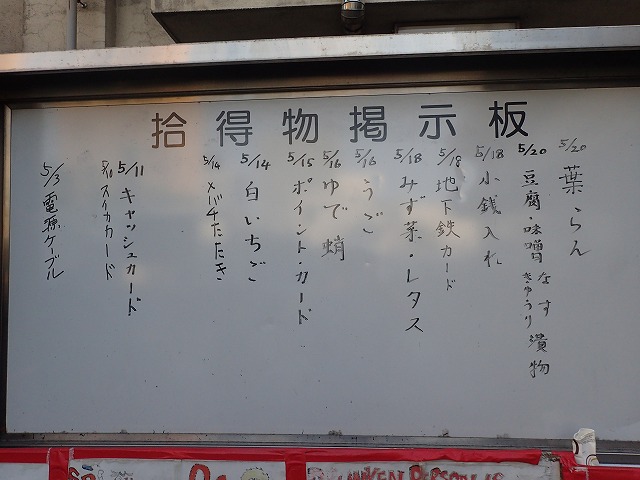 拾得物掲示板
5/20 葉らん
5/20 豆腐・味噌 なす きゅうり 漬物
5/18 小銭入れ
5/18 地下鉄カード
5/18 みず菜・レタス
5/16 うご
5/16 ゆで蛸
5/15 ポイント・カード
5/14 白いちご
5/14 メバチたたき
5/11 キャッシュカード
5/11 スイカカード
5/3 電源ケーブル